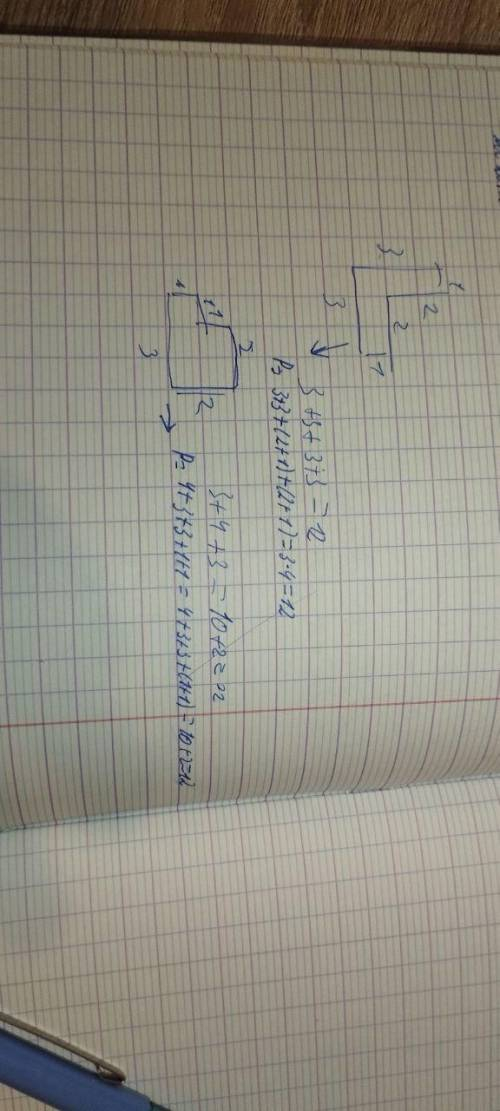 1
3
2
2
3
1
3 + 3 + 3 + 3 = 12
P = 3+3+(2+1)+(2+1)=3·4=12
2
1
1
1
2
3
3+4+3=10+2=12
P=4+3+3+1+1=4+3+3+(1+1)=10+2=12